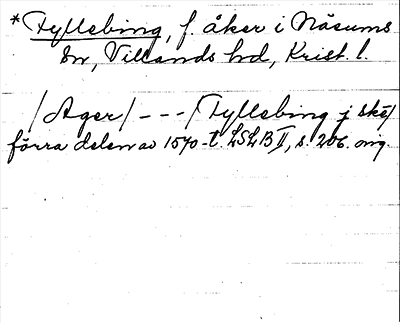 *Fyllebing, f. åker i Näsums
sn, Villands hd, Krist. l.
/Ager/ - - - /Fyllebing j skë/
förra delen av 1570-t. LSLB II, s. 206. orig.